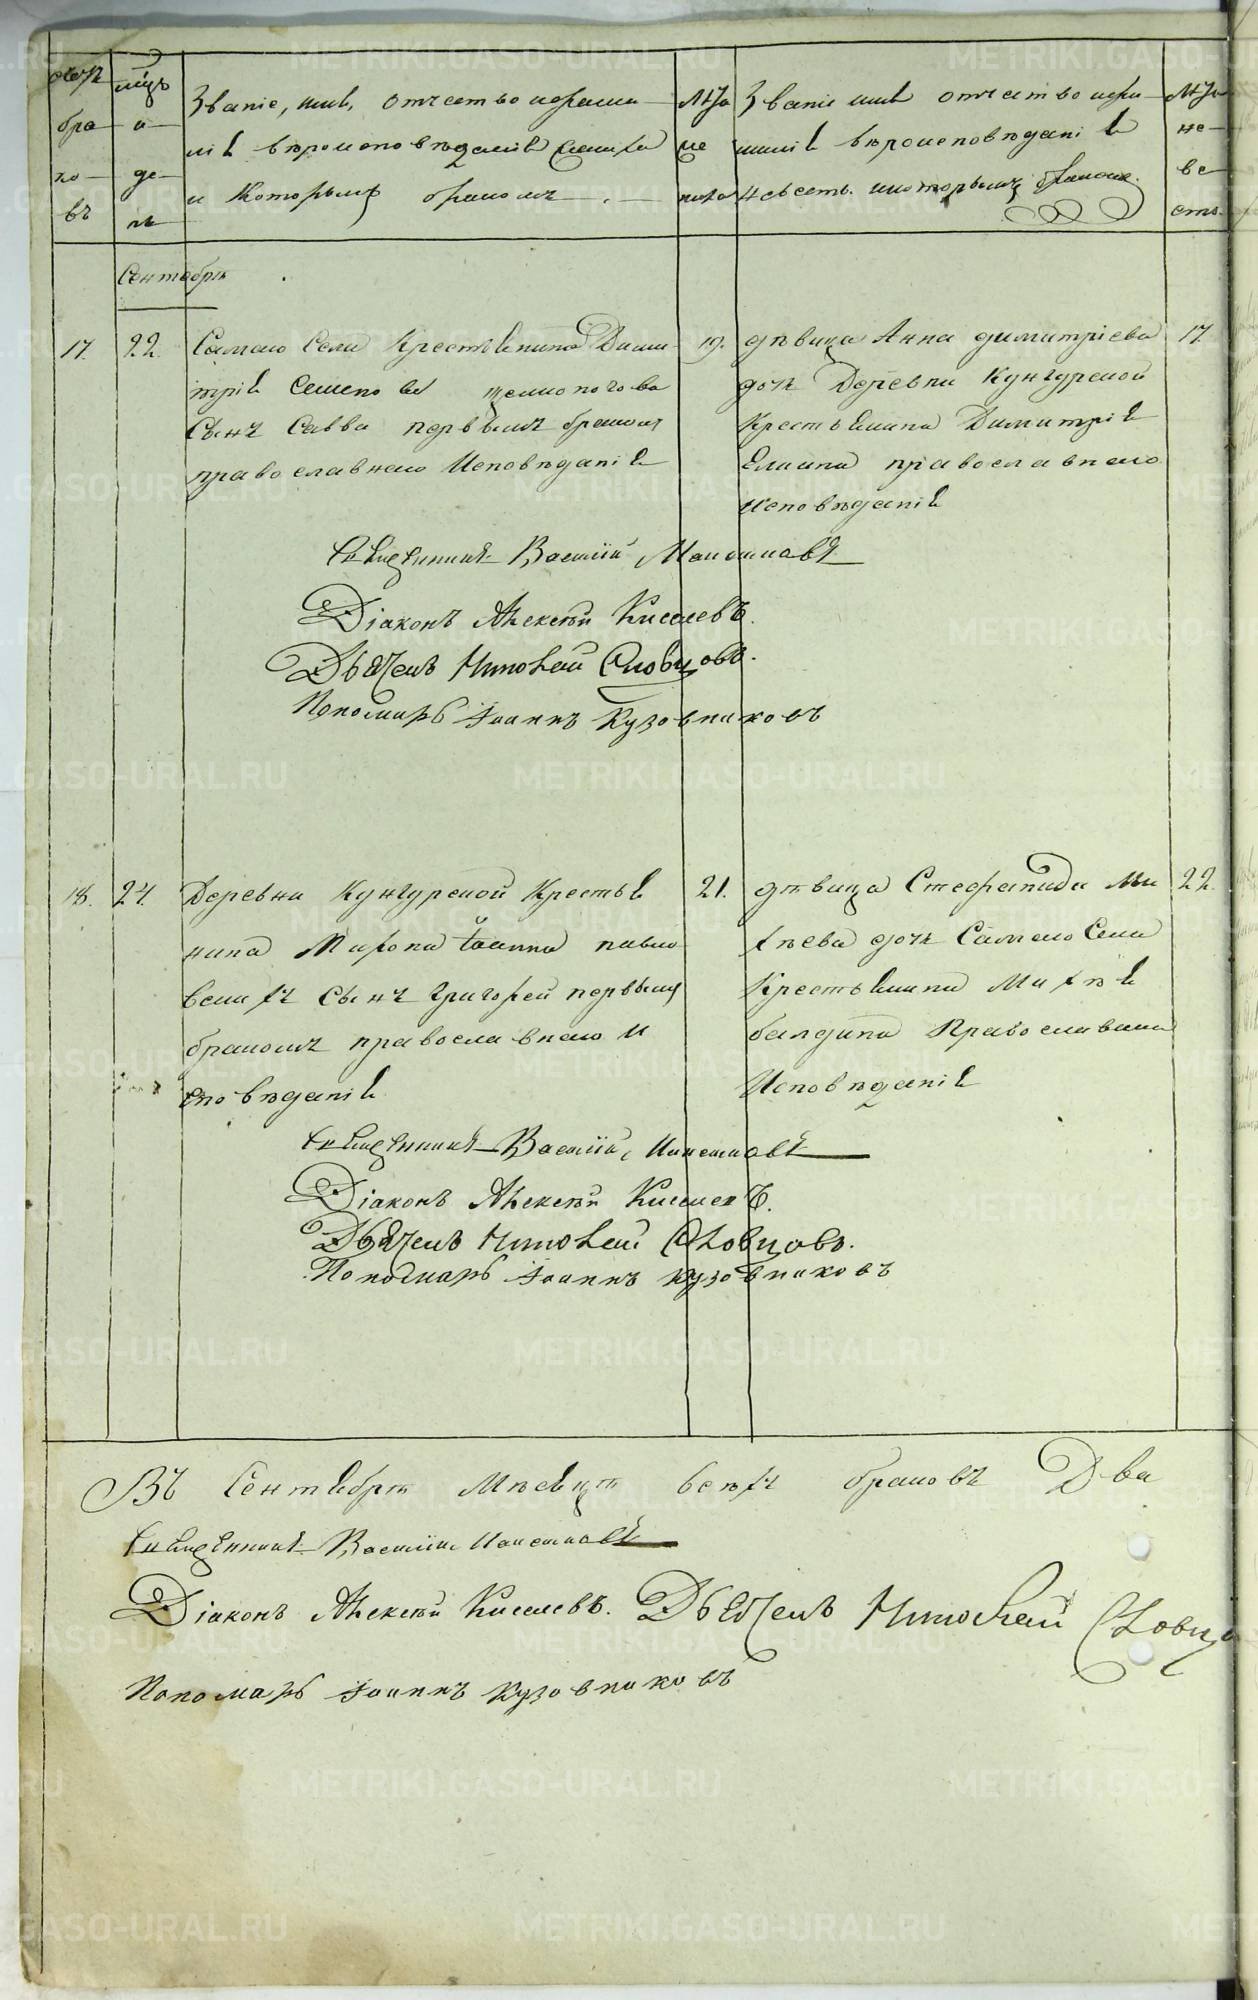 счетъ
бра
ко
въ
мѣць
и
де
нь
Званіе, имя, отчество и фами
лія и вѣроисповѣданіе жениха
и которымъ бракомъ
лѣта
же
ниха
Званіе имя отчество и фа
милія вѣроисповѣданіе
невесты и которымъ бракомъ
лѣта
не
ве
сты
Сентябрь
17. 22. Самаго Села Крестьянина Дими
трія Семенова
Сынъ Савва первымъ бракомъ
православнаго Исповѣданія
19.
дѣвица Анна Димитріева
дочь Деревни Кунгурской
Крестьянина Димитрія
Елкина православнаго
исповѣданія
17.
Священникъ Василій
Діаконъ Алексѣй Киселевъ.
Дьячекъ Николай Словцовъ.
Пономарь Іоаннъ Кузовниковъ
18. 24. Деревни Кунгурской Крестья
нина Мирона Іоанна
сынъ Григорей первымъ
бракомъ православнаго и
споведанія
21.
дѣвица Стефанида Ма
тѣева дочь Самаго Села
Крестьянина Матѣя
балдина Православнаго
Исповѣданія
22.
Священникъ Василій
Діаконъ Алексѣй Киселевъ.
Дьячекъ Николай Словцовъ.
Пономарь Іоаннъ Кузовниковъ
Въ Сентябрѣ Мѣсяцѣ всѣхъ браковъ Два
Священникъ Василій
Діаконъ Алексѣй Киселевъ. Дьячекъ Николай
Пономарь Іоаннъ Кузовниковъ
METRIKI.GASO-URAL.RU